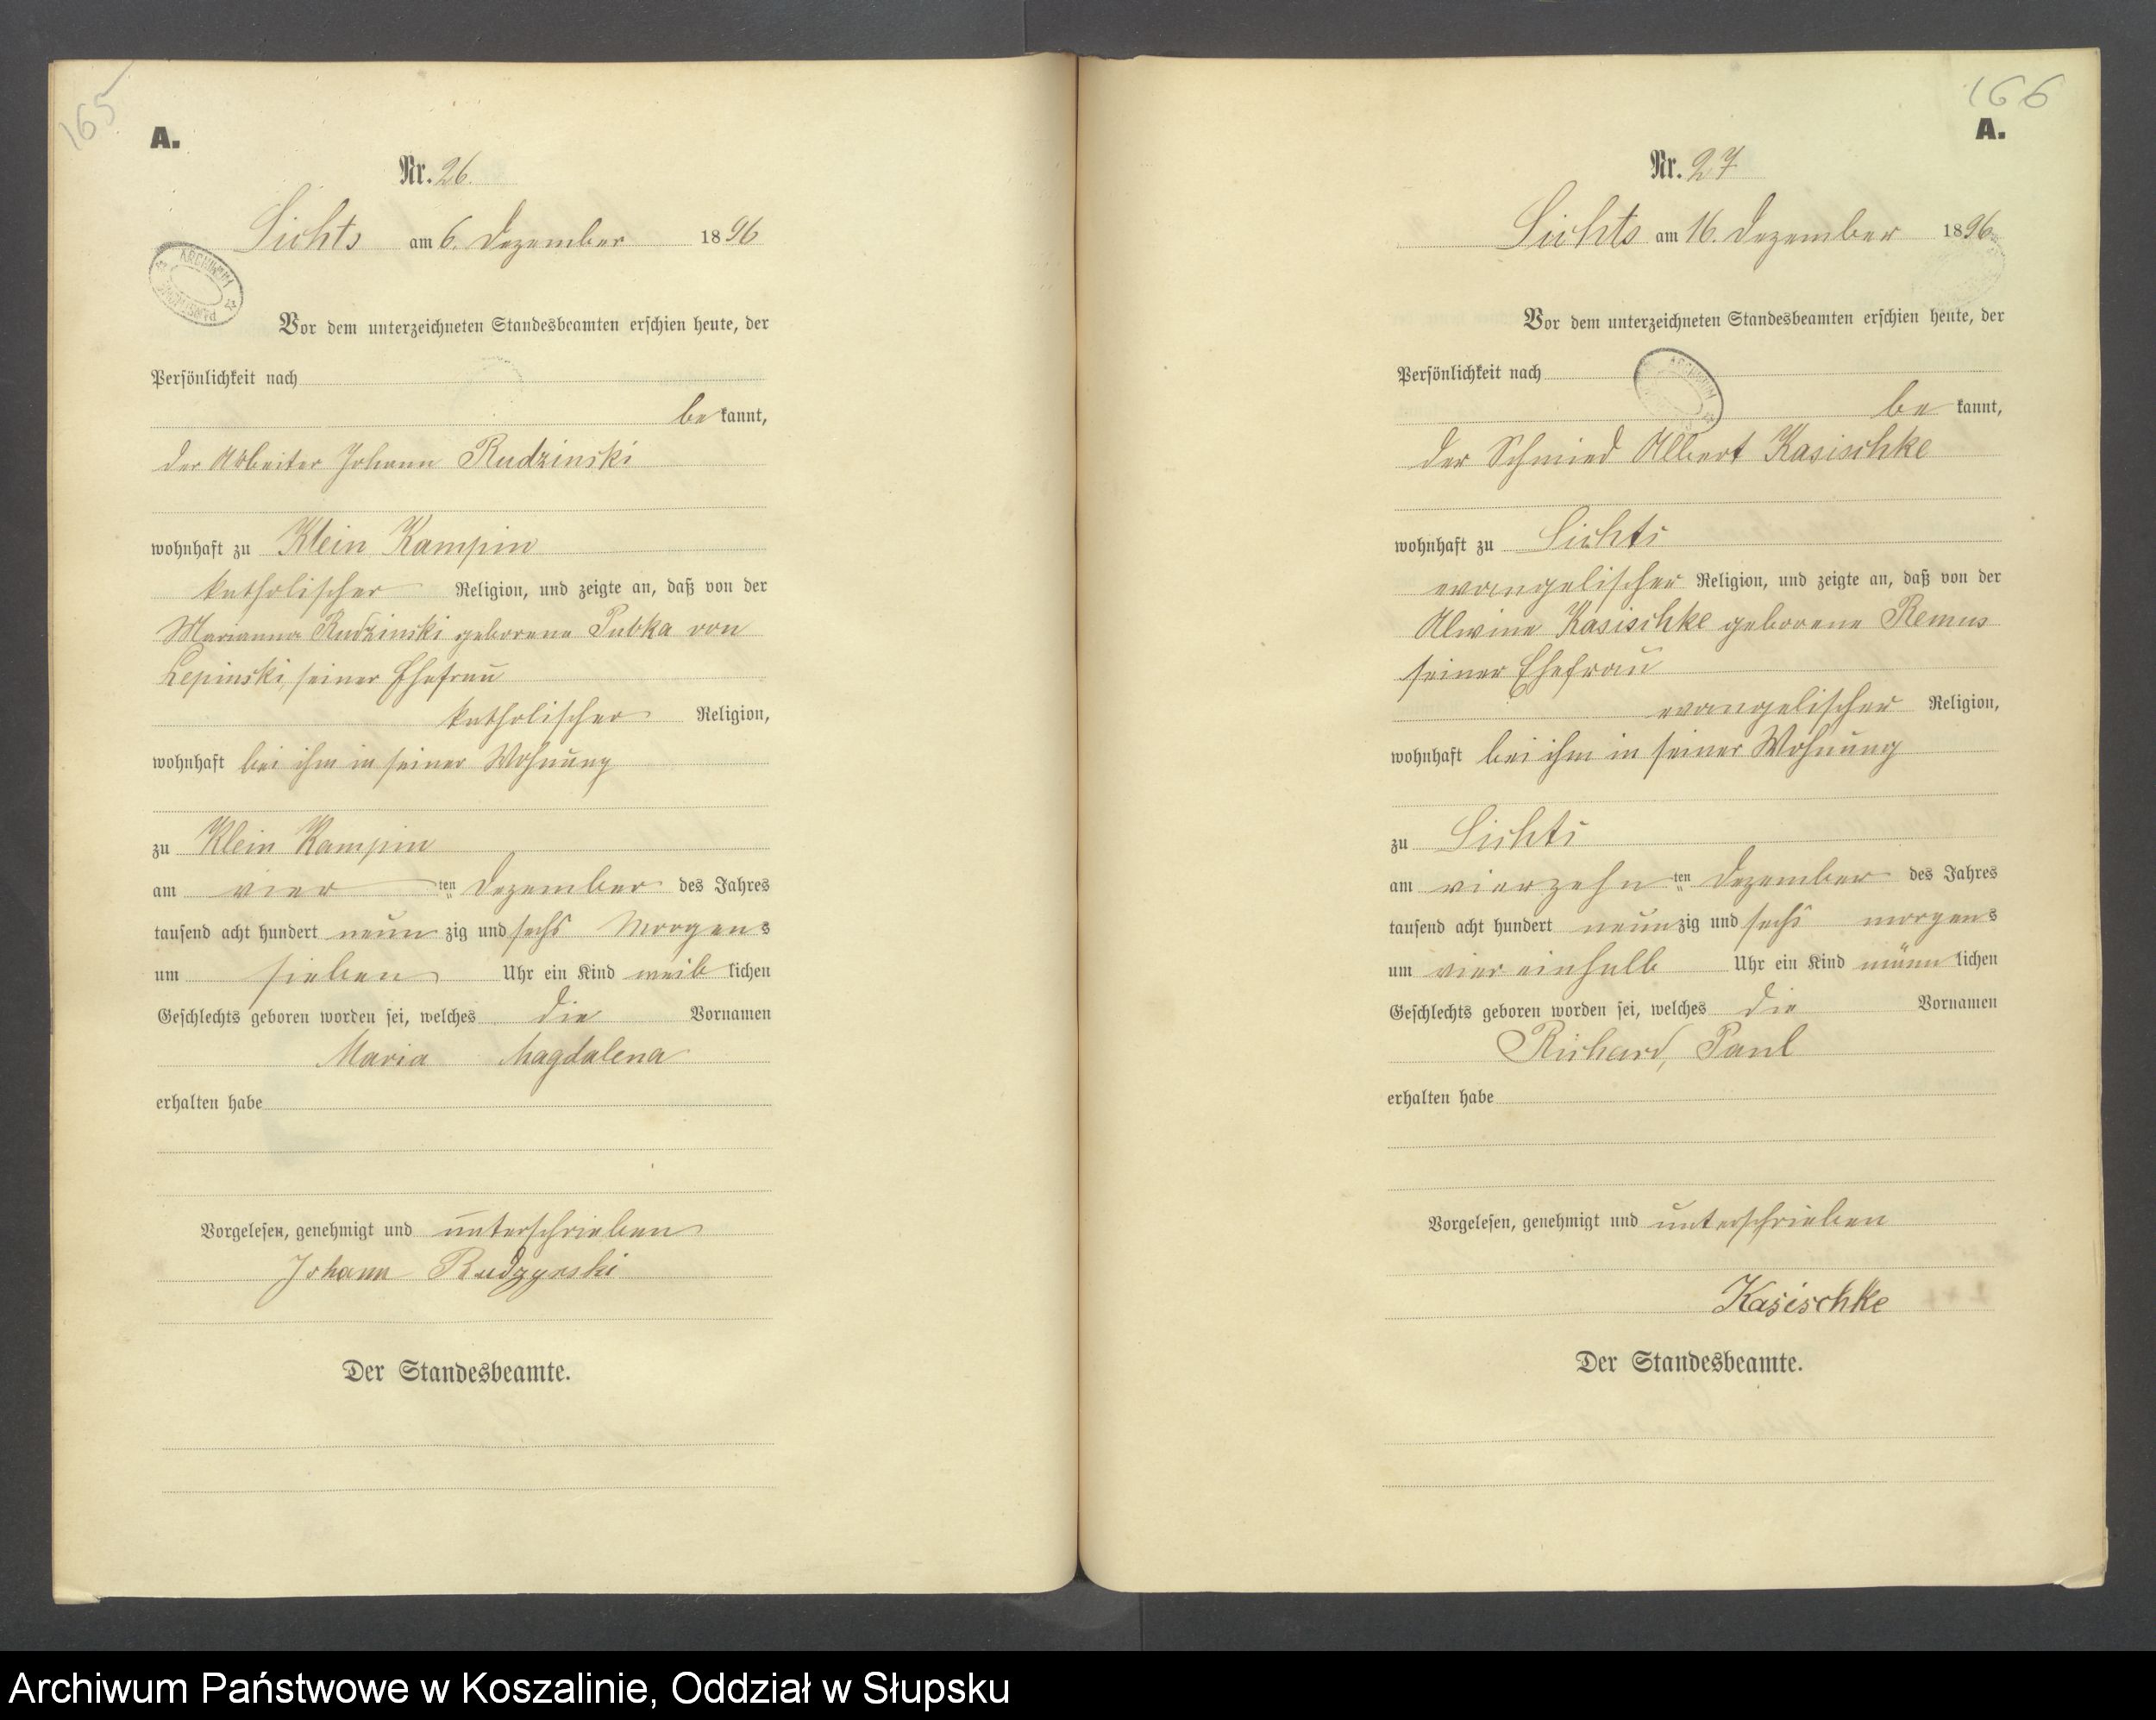 165
A.
Nr. 26.
Lichts am 6. Dezember 1896
ARCHIWUM
Vor dem unterzeichneten Standesbeamten erschien heute, der
Persönlichkeit nach
be kannt,
der Arbeiter Johann Rudzinski
wohnhaft zu Klein Kampin
katholischer Religion, und zeigte an, daß von der
Marianna Rudzinski geborene Pubka von
Lepinski, seiner Ehefrau
katholischer Religion,
wohnhaft bei ihm in seiner Wohnung
zu Klein Kampin
am vier ten Dezember des Jahres
tausend acht hundert neun zig und sechs Morgens
um sieben Uhr ein Kind weib lichen
Geschlechts geboren worden sei, welches die Vornamen
Maria Magdalena
erhalten habe
Vorgelesen, genehmigt und unterschrieben
Johann Rudzynski
Der Standesbeamte.
166
A.
Nr. 27
Lichts am 16. Dezember 1896
Vor dem unterzeichneten Standesbeamten erschien heute, der
Persönlichkeit nach
ARCHIWUM
be kannt,
der Schmied Albert Kasischke
wohnhaft zu Lichts
evangelischer Religion, und zeigte an, daß von der
Alwine Kasischke geborene Remus
seiner Ehefrau
evangelischer Religion,
wohnhaft bei ihm in seiner Wohnung
zu Lichts
am vierzehn ten Dezember des Jahres
tausend acht hundert neun zig und sechs morgens
um vier einhalb Uhr ein Kind männ lichen
Geschlechts geboren worden sei, welches die Vornamen
Richard, Paul
erhalten habe
Vorgelesen, genehmigt und unterschrieben
Kasischke
Der Standesbeamte.
Archiwum Państwowe w Koszalinie, Oddział w Słupsku